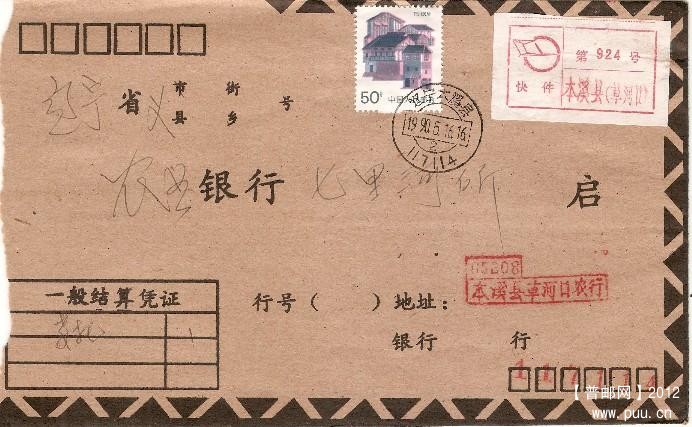 50分 中国
第 924 号
快件
本溪县(草河口)
辽宁省义 市 街
县 乡 号
1990.5.16.16
2
117114
农业银行 七里河 启
05808
本溪县草河口农行
一般结算凭证
行号( )地址:
1
银行 行
117114
【普邮网】2012
www.puu.cn